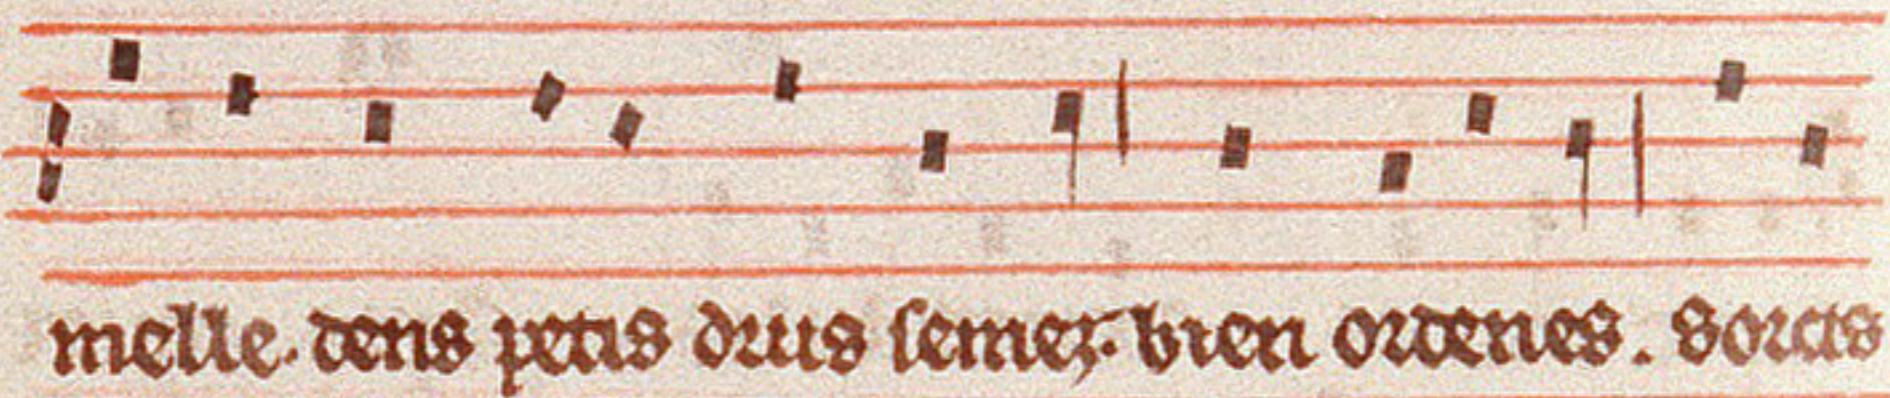 melle. dens petis drus semez. bien ordenes. Sorcis